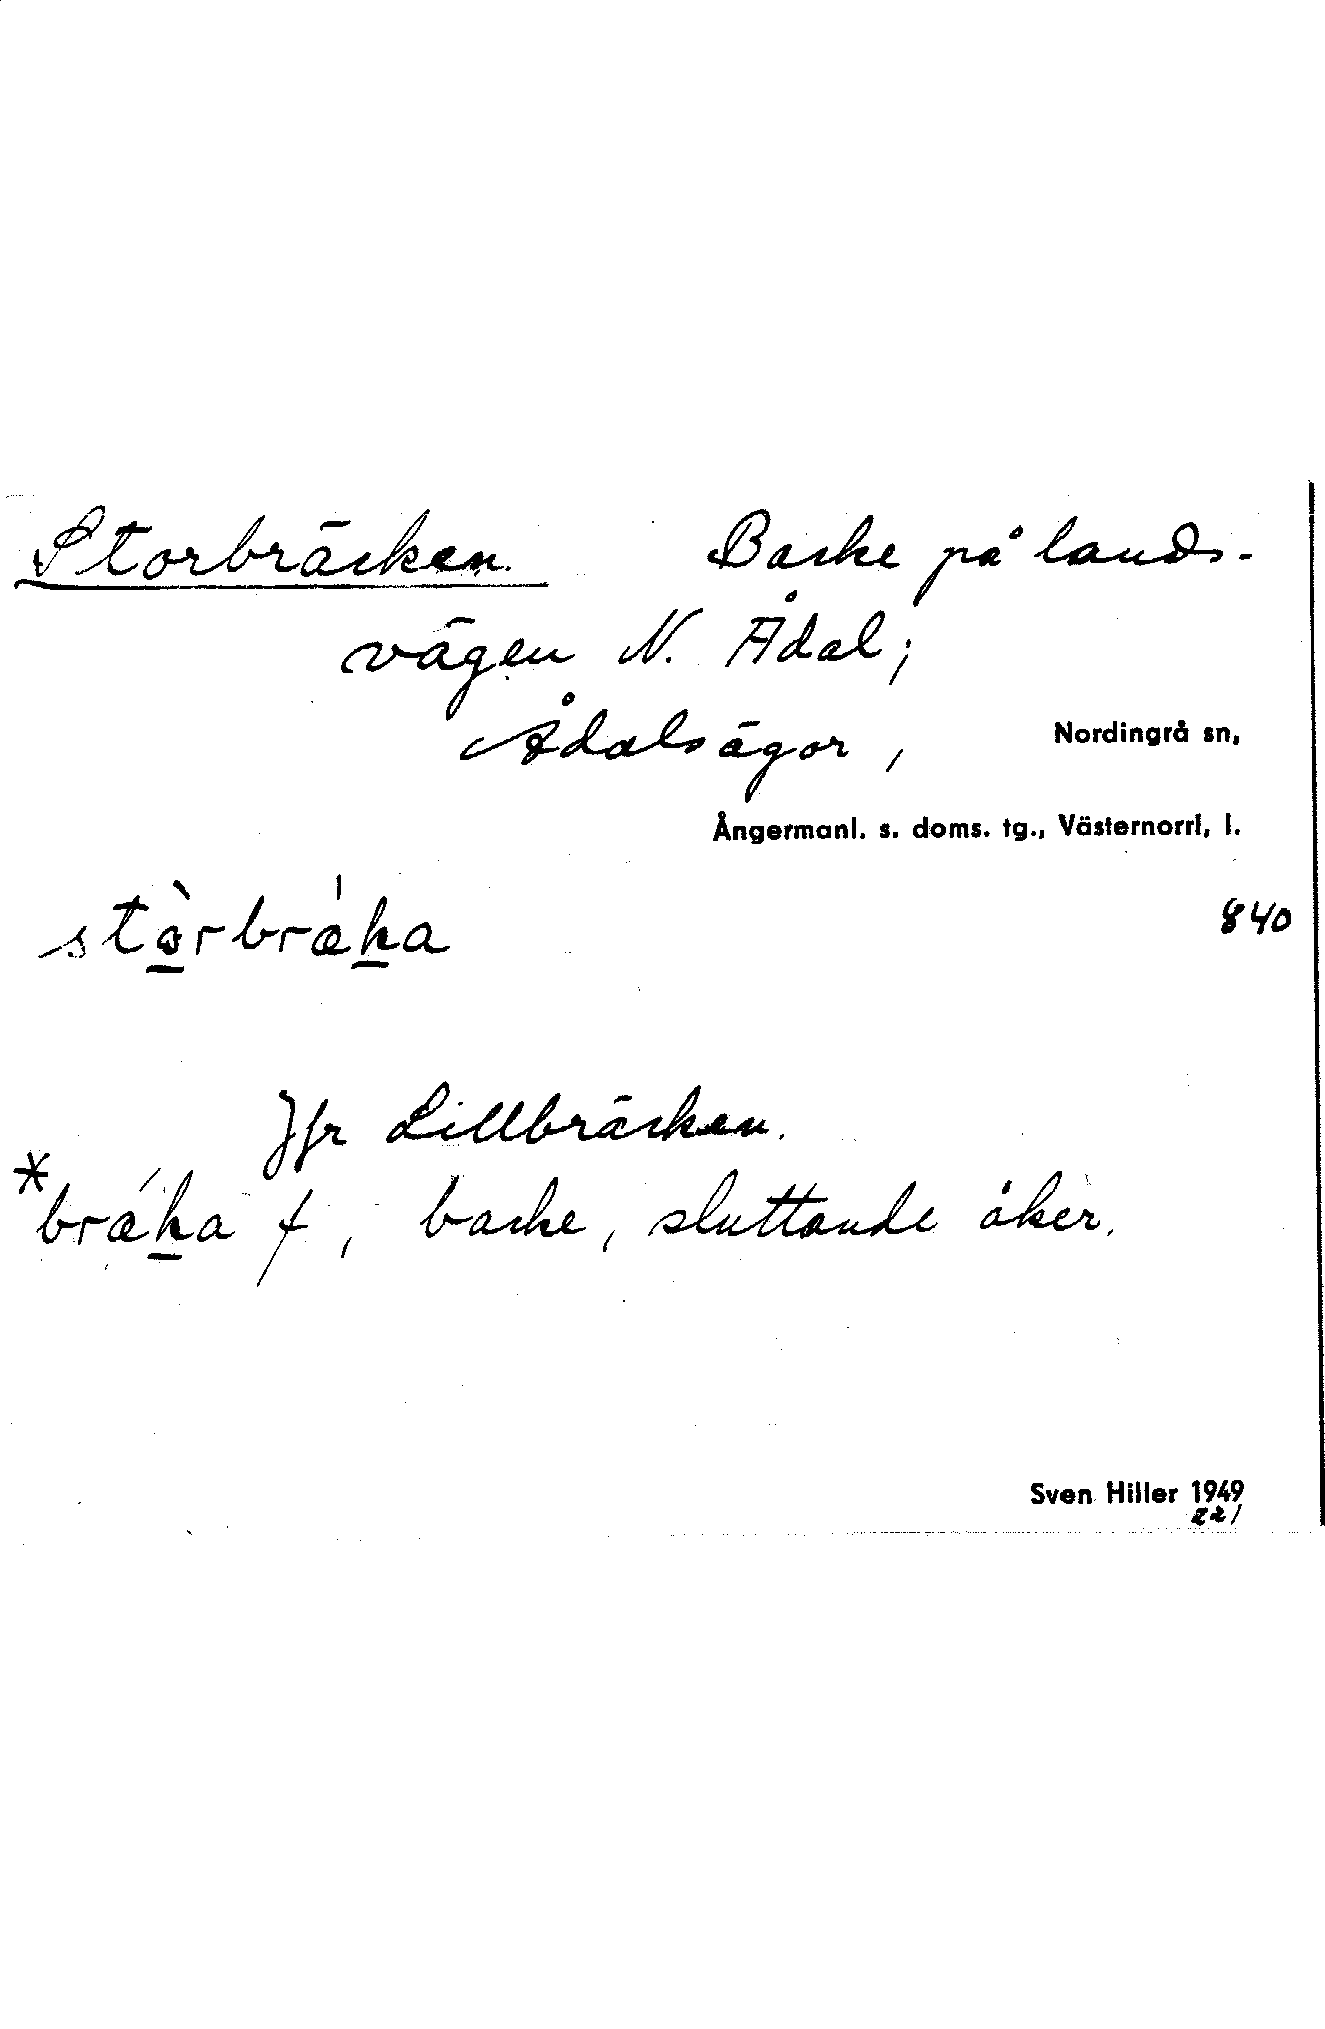 Storbräcken. Backe på lands-
vägen N. Ådal;
Ådals ägor, Nordingrå sn,
Ångermanl. s. doms. tg., Västernorrl. l.
stòrbrǽka 840
Jfr Lillbräcken.
*brǽka f, backe, sluttande åker.
Sven Hiller 1949
221